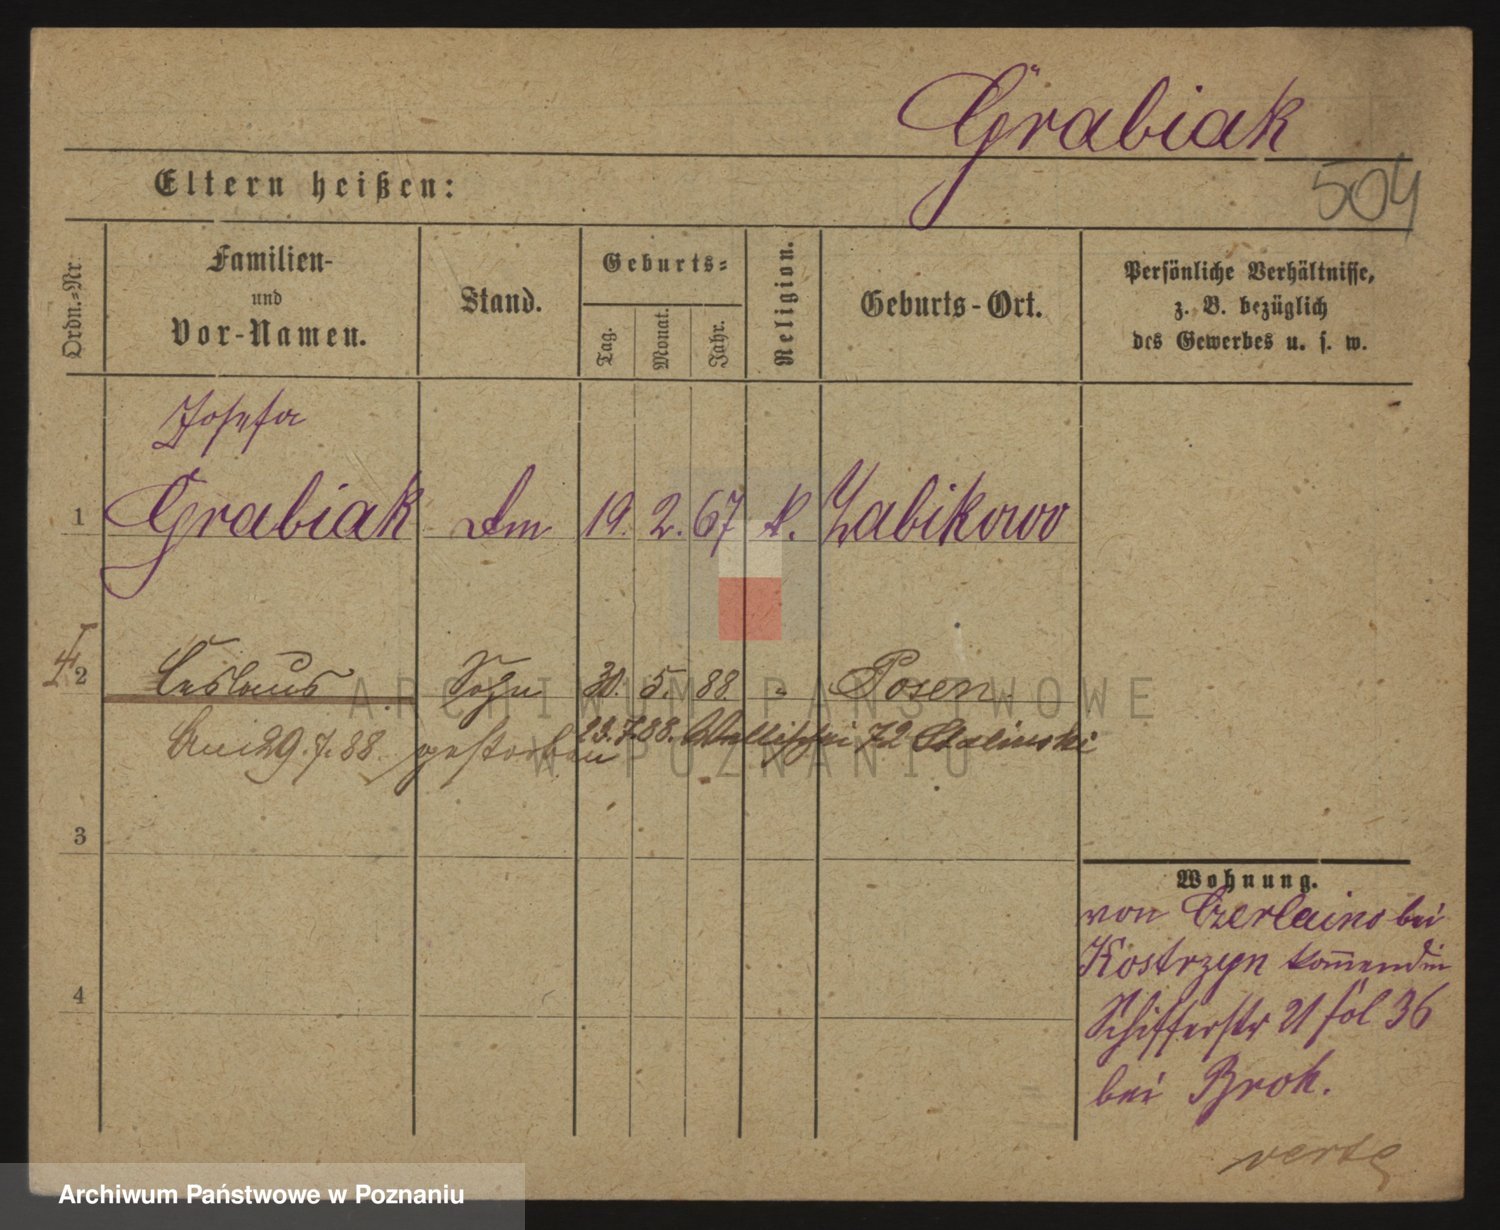 Grabiak
504
Eltern heißen:
Ordn.=Nr.
Familien-
und
Vor-Namen.
Stand.
Geburts=
Tag.
Monat.
Jahr.
Religion.
Geburts-Ort.
Persönliche Verhältnisse,
z. B. bezüglich
des Gewerbes u. s. w.
Josefa
1 Grabiak 19. 2. 67 k. Zabikowo
2 Ceslaus Sohn 30. 5. 88 " Posen
23. 7. 88. Wallischei 72 Stalinski
Am 29. 7. 88 gestorben
3
4
Wohnung.
von Czerlaino bei
Kostrzyn kommend in
Schifferstr 21 fol 36
bei Brok.
verte
ARCHIWUM PAŃSTWOWE
W POZNANIU
Archiwum Państwowe w Poznaniu